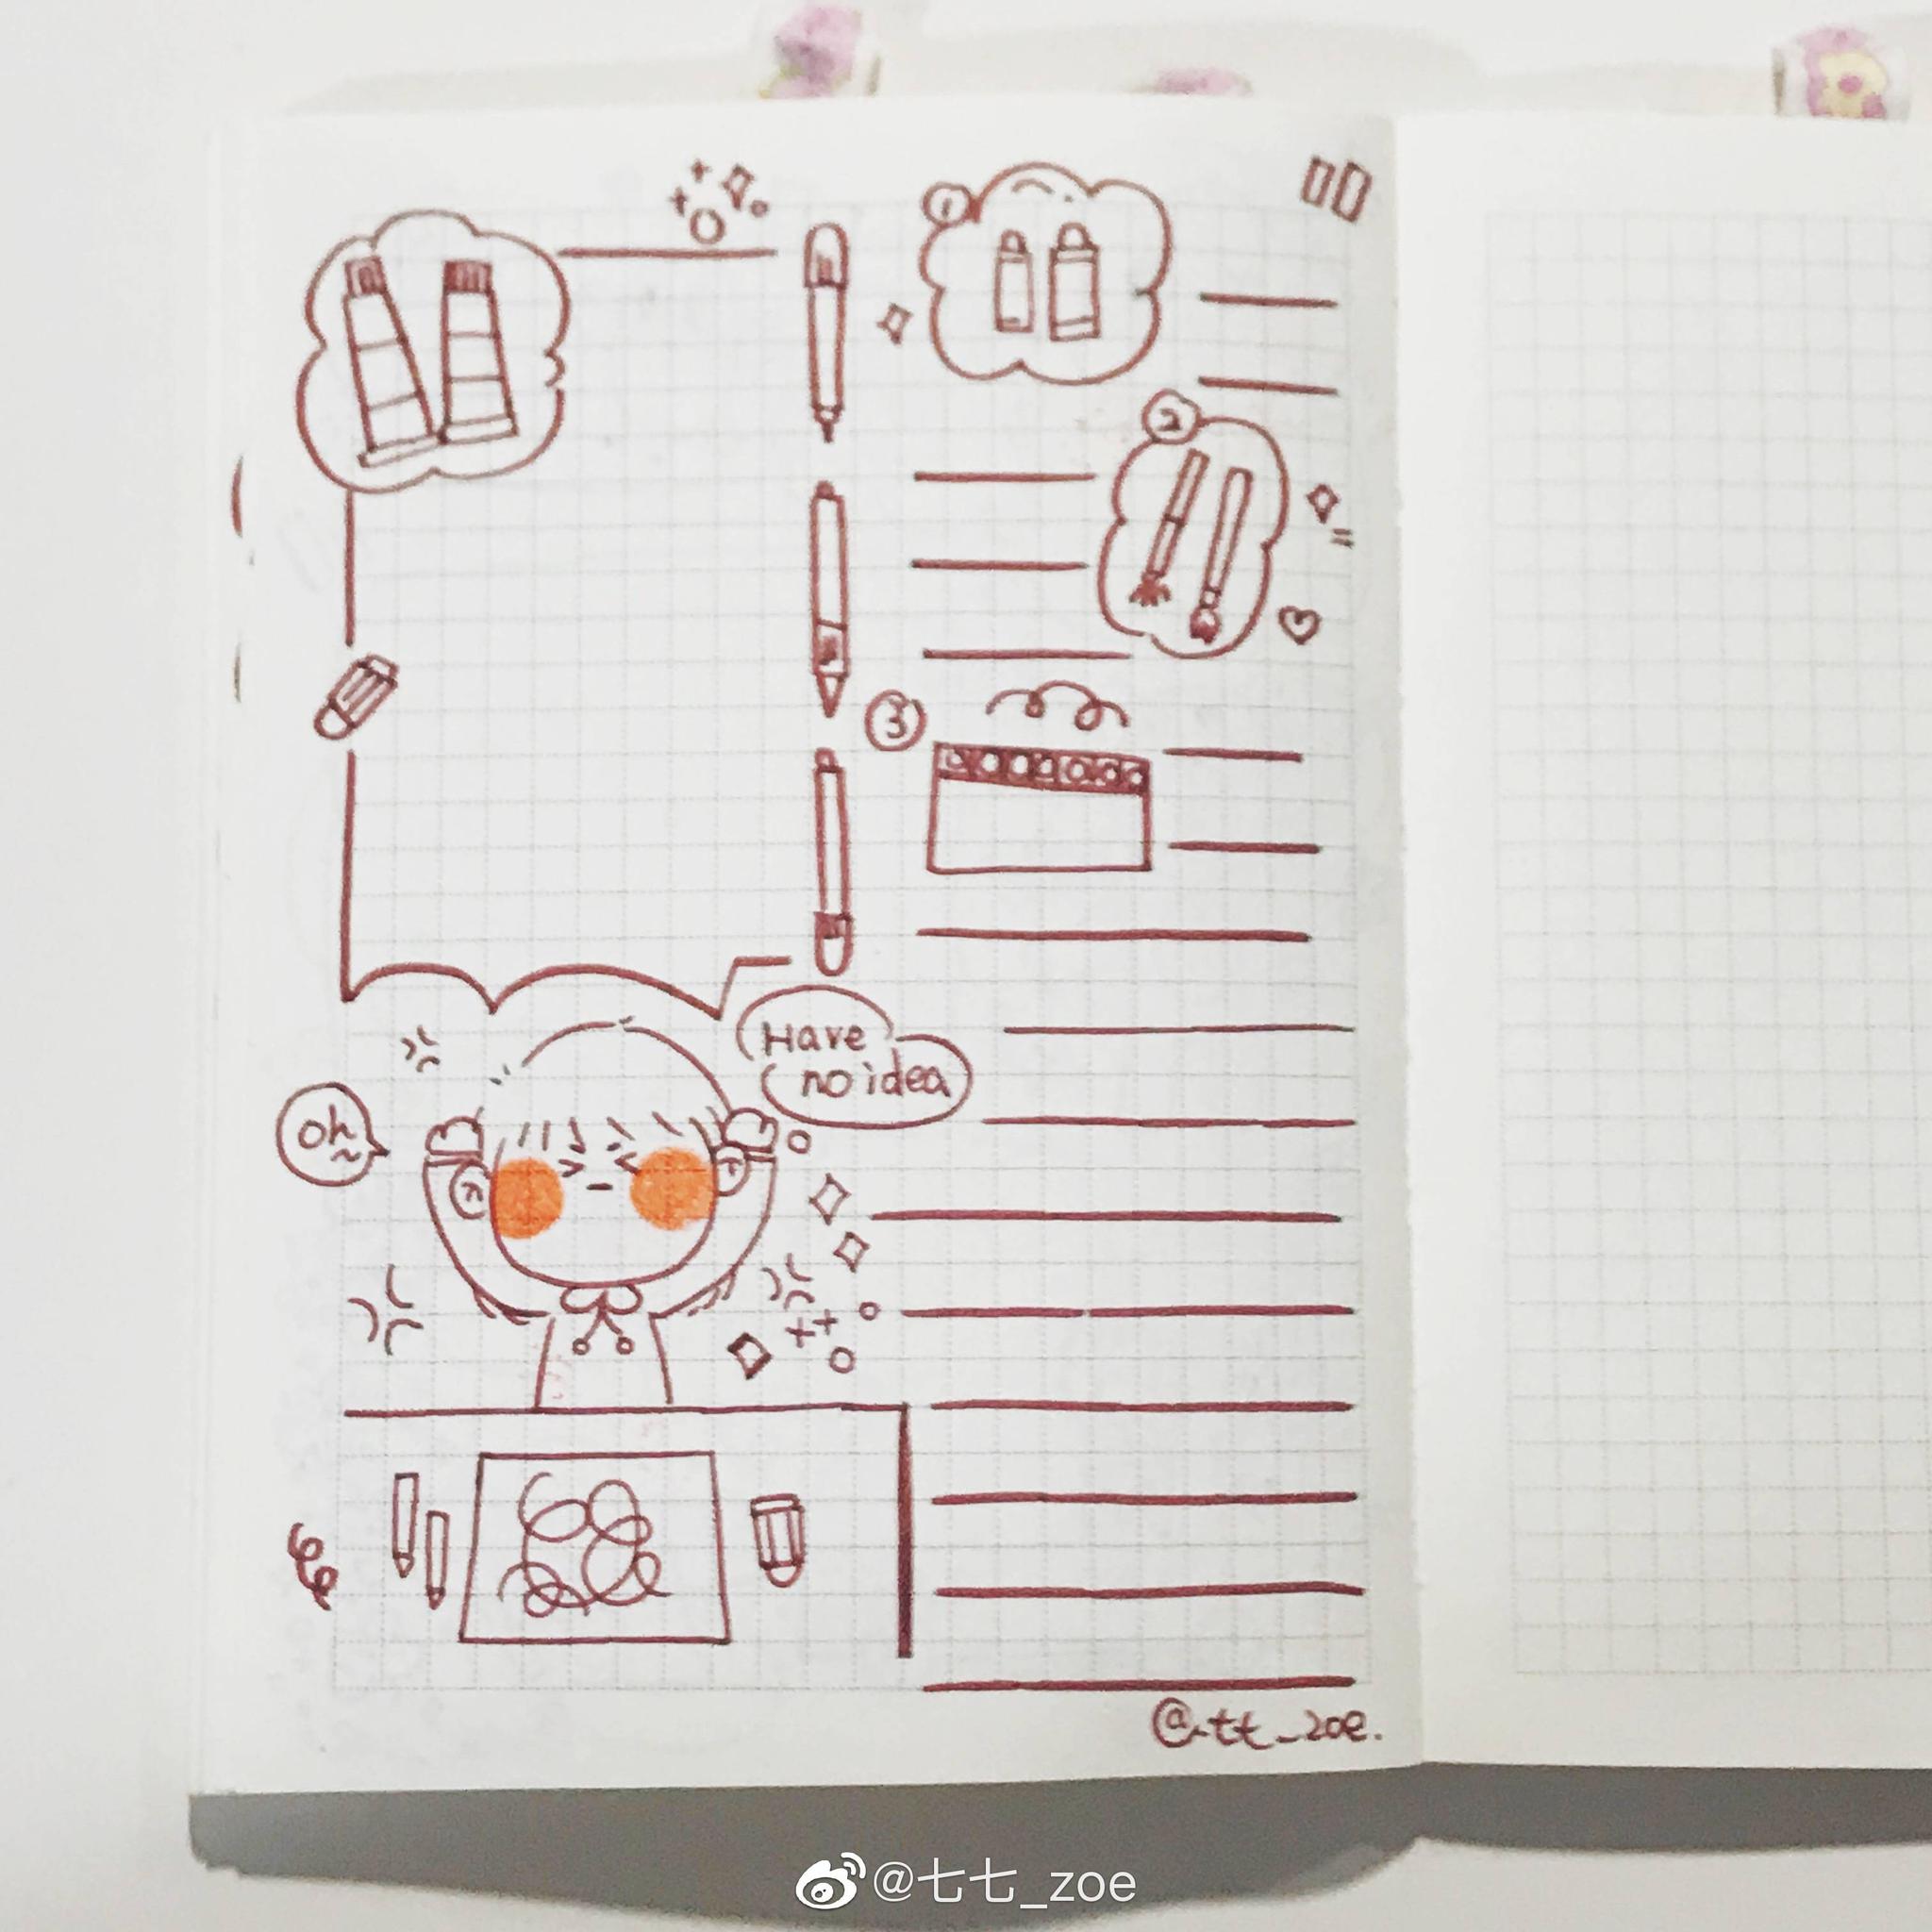 ①
②
③
Have
no idea
oh~
@tt_zoe.
@七七_zoe